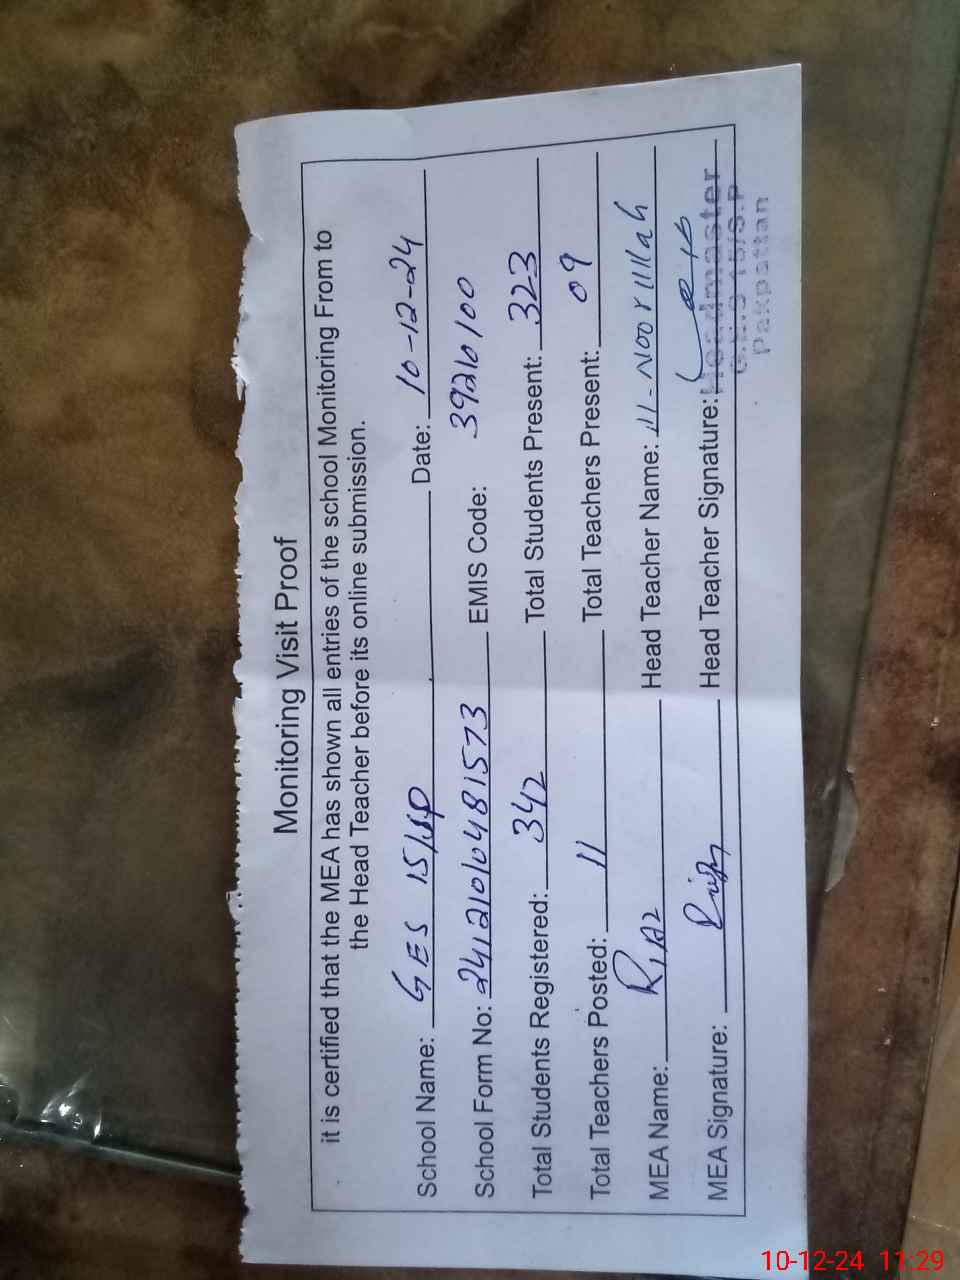 Monitoring Visit Proof
it is certified that the MEA has shown all entries of the school Monitoring From to
the Head Teacher before its online submission.
School Name: GES 15/SP Date: 10-12-24
School Form No: 24121010481573 EMIS Code: 39210100
Total Students Registered: 342 Total Students Present: 323
Total Teachers Posted: 11 Total Teachers Present: 09
MEA Name: RIAZ Head Teacher Name:
MEA Signature: Head Teacher Signature:
Headmaster
Pakpattan
10-12-24 11:29